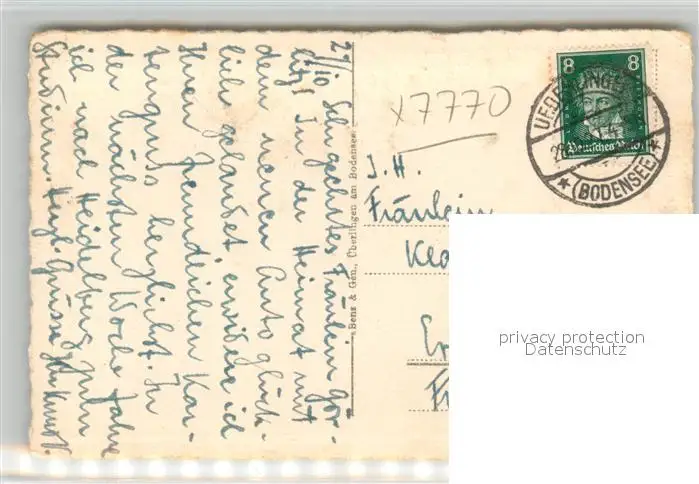 29/10 Sehr geehrtes Fräulein Gör-
litz! In der Heimat mit
dem neuen Auto glück-
lich gelandet erwidere ich
Ihren freundlichen Kar-
tengruss herzlichst. In
der nächsten Woche fahre
ich nach Heidelberg zum
Studium. Herzl. Grüsse Ihr
Benz & Gen., Überlingen am Bodensee
x7770
8 8
Deutsches Reich
UEBERLINGEN
(BODENSEE)
I.H.
Fräulein
privacy protection
Datenschutz